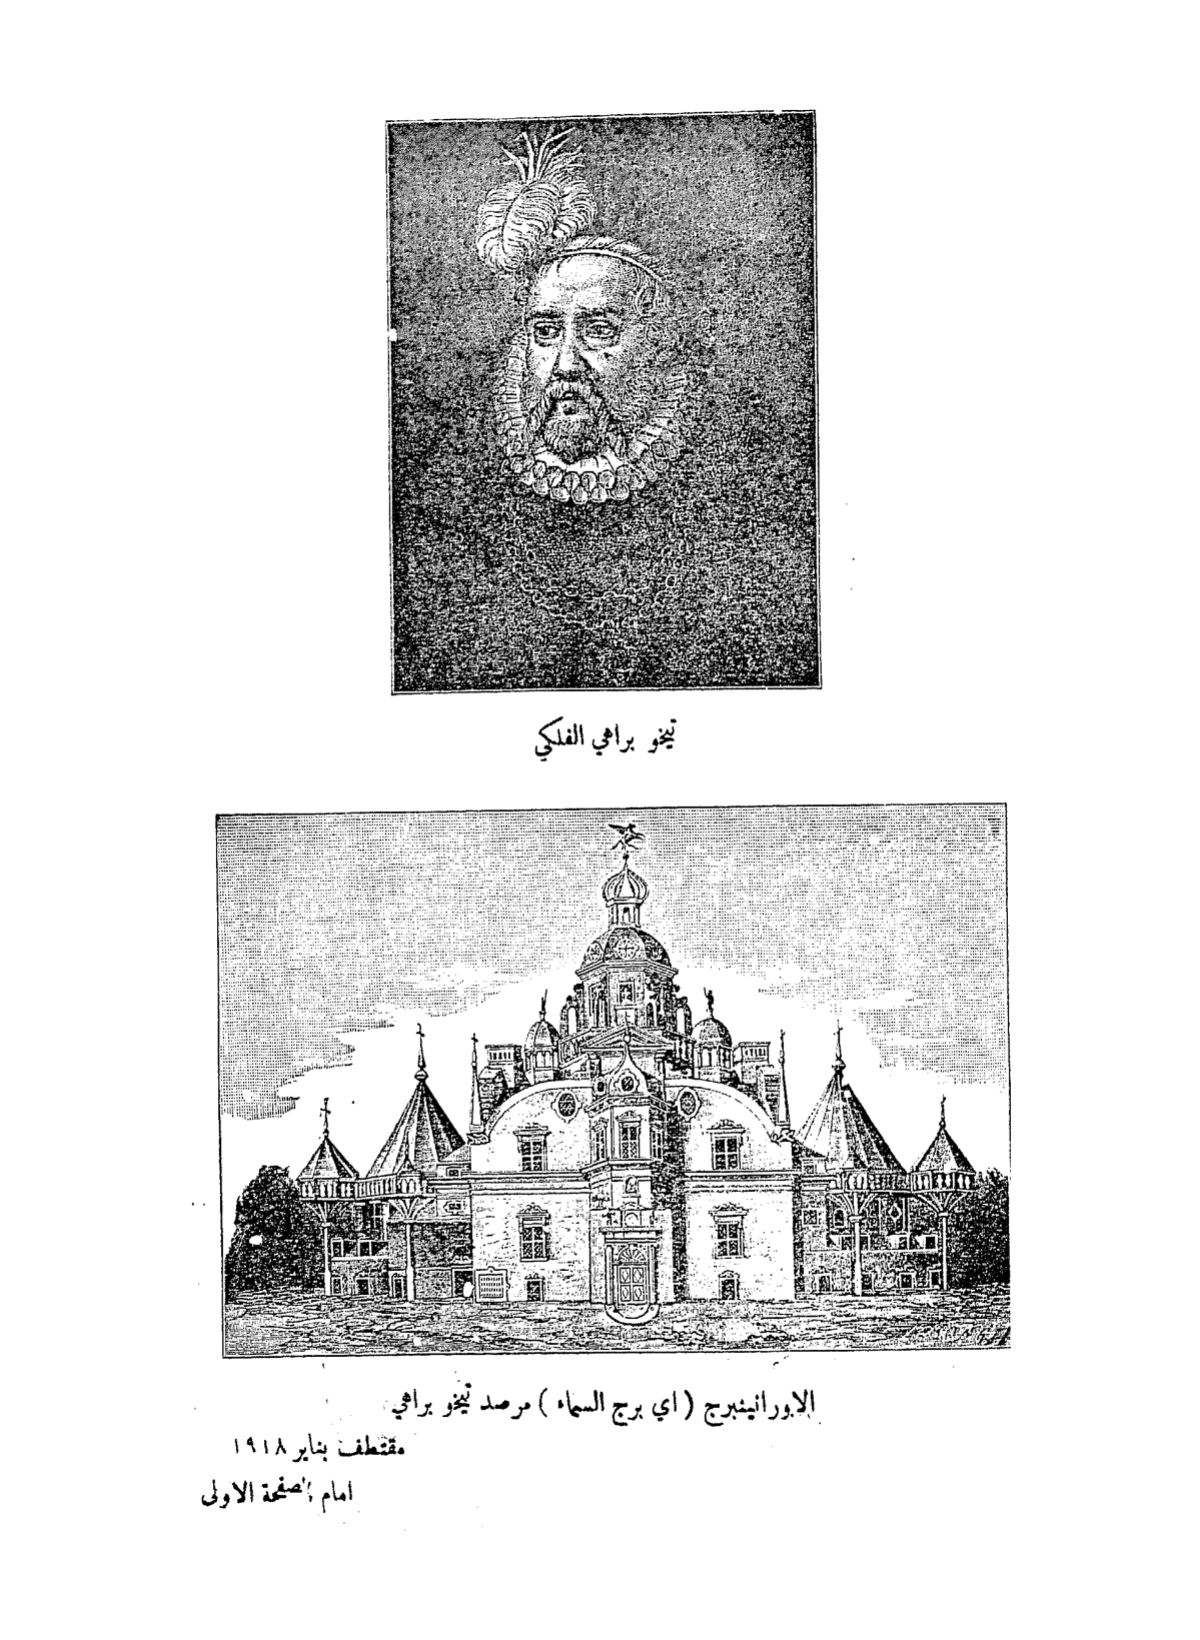 تيخو براهي الفلكي
الاورانينبرج ( اي برج السماء ) مرصد تيخو براهي
مقتطف يناير ١٩١٨
امام الصفحة الاولى